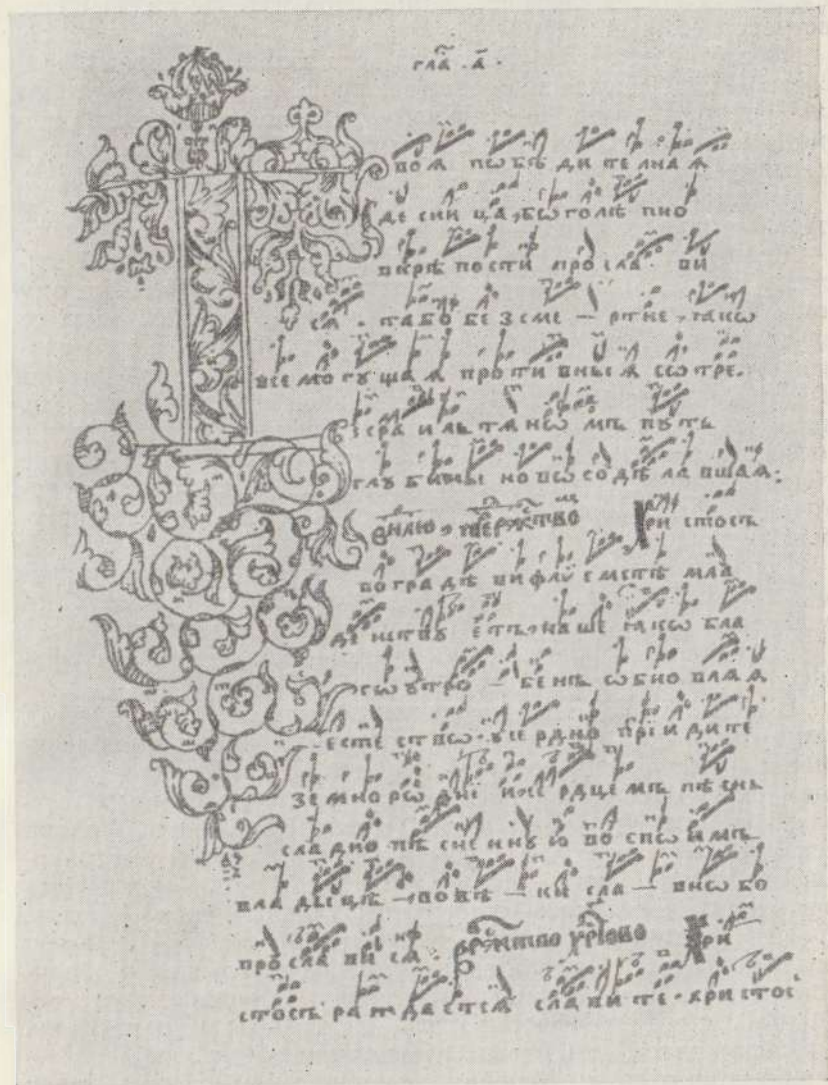 гла҃ . а҃ .
воѧ пѡбѣ ди те лнаѧ
де сни ца , бѡголѣ пно
вкрѣ пости про сла ви
сѧ . та бо бе з сме — ртне , ꙗкѡ
все мо гу щаѧ про ти вныѧ сѡ тре .
ꙁ҆ра и ль тѧ нѡ мъ пꙋть
глꙋ бины но всѡ содѣ ла вшаѧ :
ри стосъ
во градѣ ви флѵ е мстѣ мла
де нствꙋ етъ , на ше ꙗкѡ бла
сѡ ꙋтро — бенъ ѡбно влѧѧ
есте ствѡ . ꙋсе рдно прїи ди те
зе мно рѡ днї и҆же рдце мъ пѣ снь
сла дко пѣ сне нну ю во спѡ и мъ
вла ды цѣ — , во вѣ — ки сла — внѡ бо
про сла ви сѧ . ри
стосъ ра ж да етсѧ сла ви те . хри стос